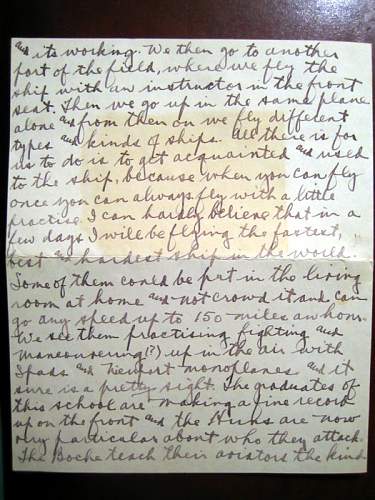 and its working. We then go to another
part of the field, where we fly the
ship with an instructor in the front
seat. Then we go up in the same plane
alone and from then on we fly different
types and kinds of ships. All there is for
us to do is to get acquainted and used
to the ship, because when you can fly
once you can always fly with a little
practise. I can hardly believe that in a
few days I will be flying the fastest,
best and hardest ship in the world.
Some of them could be put in the living
room at home and not crowd it and can
go any speed up to 150 miles an hour.
We see them practising fighting and
maneouvering(?) up in the air with
Spads and Nieuport monoplanes and it
sure is a pretty sight. The graduates of
this school are making a fine record
up on the front and the Huns are now
very particular about who they attack.
The Boche teach their aviators the kind